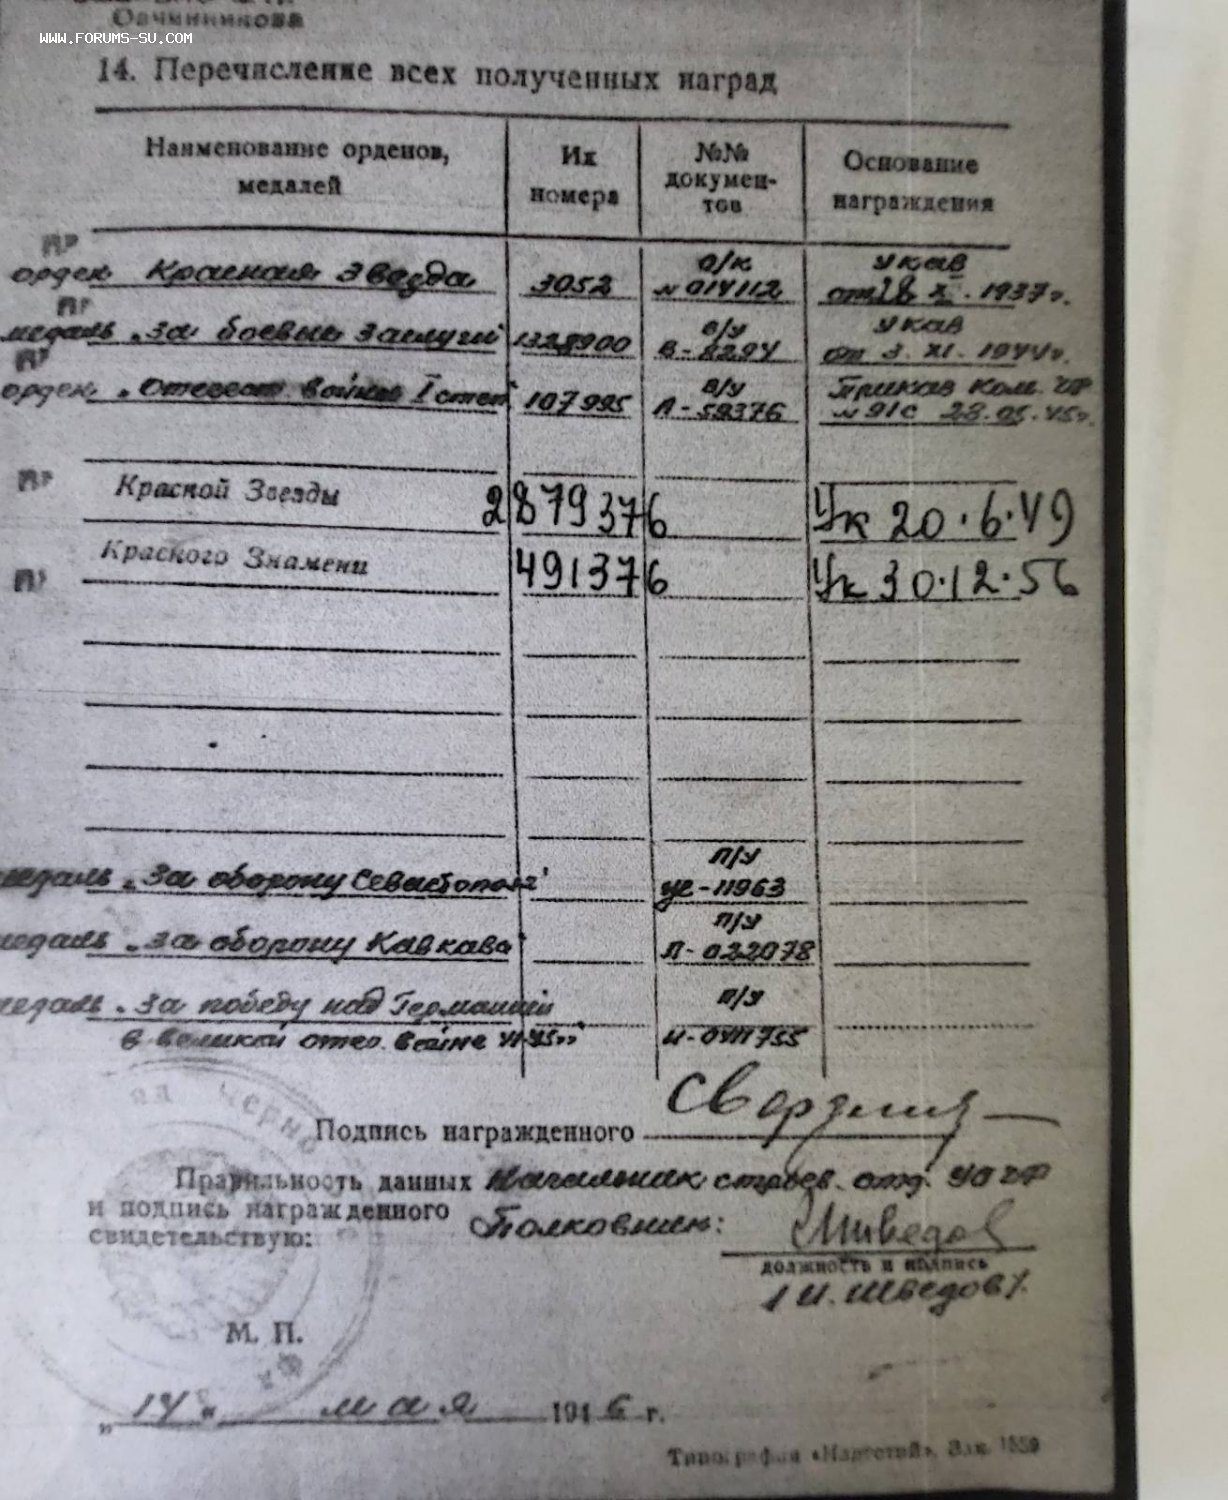 Овчинникова
WWW.FORUMS-SU.COM
14. Перечисление всех полученных наград
Наименование орденов, медалей
Их номера
№№ докумен-тов
Основание награждения
орден Красная Звезда 3052 о/к № 014112 Указ от X. 1937г.
медаль „За боевые заслуги" в/у В-8294 Указ от 3. XI. 1944г.
орден „Отечест. войны I степ" 107995 в/у Л-592376 Приказ Ком. ЧФ № 91с 28.05.45г.
Красной Звезды 2879376 Ук 20.6.49
Красного Знамени 491376 Ук 30.12.56
медаль „За оборону Севастополя" п/у УС-11963
медаль „За оборону Кавказа" п/у Л-022078
медаль „За победу над Германией п/у
в великой отеч. войне 41-45гг" И-0411755
Подпись награжденного
Правильность данных Начальник строев. отд. УО ЧФ
и подпись награжденного Полковник:
свидетельствую:
должность и подпись
/И. Шведов/.
М. П.
„14" мая 1946 г.
Типография «Известий». Зак. 1559